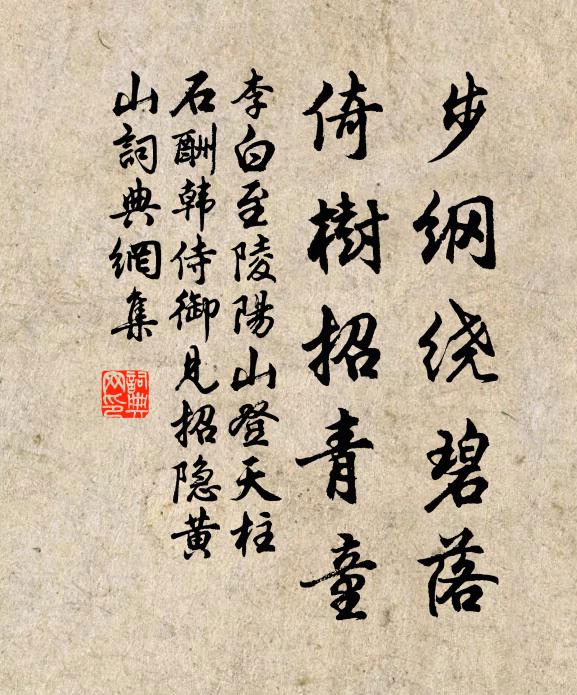 步纲绕碧落
倚樹招青童
李白至陵陽山登天柱
石酬韩侍御見招隐黄
山詞典網集
詞典
网印